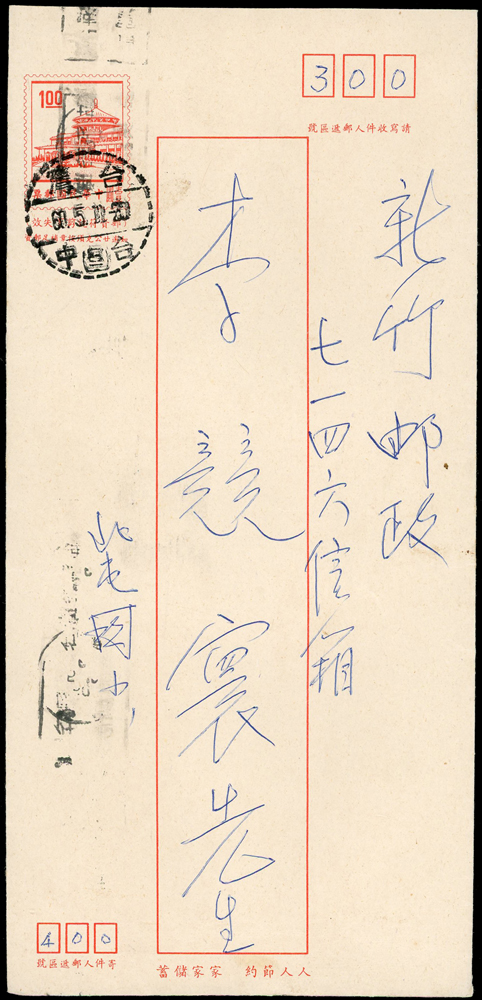 300
請寫收件人郵遞區號
新竹邮政
七一四六信箱
李競寰先生
北屯國小
1.00
400
寄件人郵遞區號
人人節約 家家儲蓄